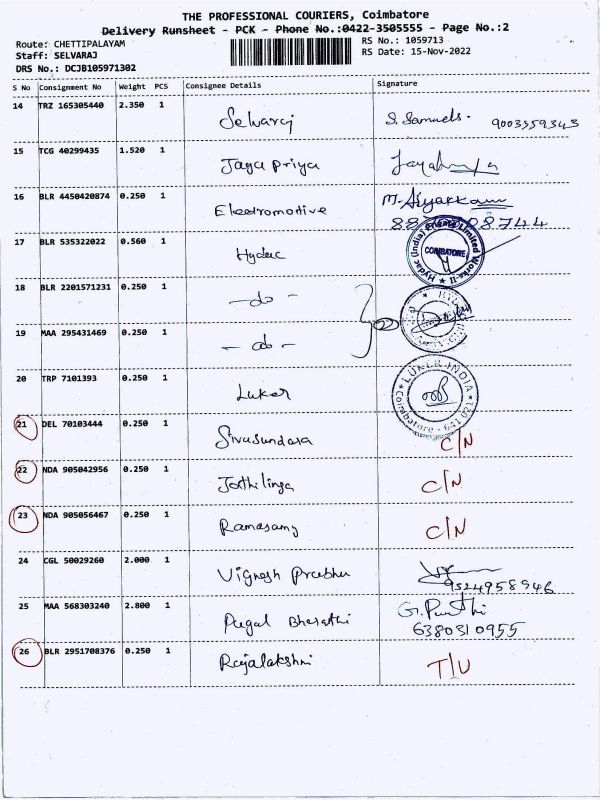 THE PROFESSIONAL COURIERS, Coimbatore
Delivery Runsheet - PCK - Phone No.:0422-3505555 - Page No.:2
Route: CHETTIPALAYAM RS No.: 1059713
Staff: SELVARAJ RS Date: 15-Nov-2022
DRS No.: DCJB105971302
S No Consignment No Weight PCS Consignee Details Signature
14 TRZ 165305440 2.350 1 Selvaraj S. Samuels. 9003359343
15 TCG 40299435 1.520 1 Jaya priya
16 BLR 4450420874 0.250 1 Electromotive M. Aiyakkannu
8744
17 BLR 535322022 0.560 1 Hydac Hydac (India) Private Limited Works-II COIMBATORE
18 BLR 2201571231 0.250 1 -do-
19 MAA 295431469 0.250 1 -do-
20 TRP 7101393 0.250 1 Luker LUKER INDIA Coimbatore - 641 021
21 DEL 70103444 0.250 1 Sivasundara C/N
22 NDA 905042956 0.250 1 Jothilinga C/N
23 NDA 905056467 0.250 1 Ramasamy C/N
24 CGL 50029260 2.000 1 Vignesh Prabhu 9524958946
25 MAA 568303240 2.800 1 Pugal Bharathi
6380310955
26 BLR 2951708376 0.250 1 Rajalakshmi T/U